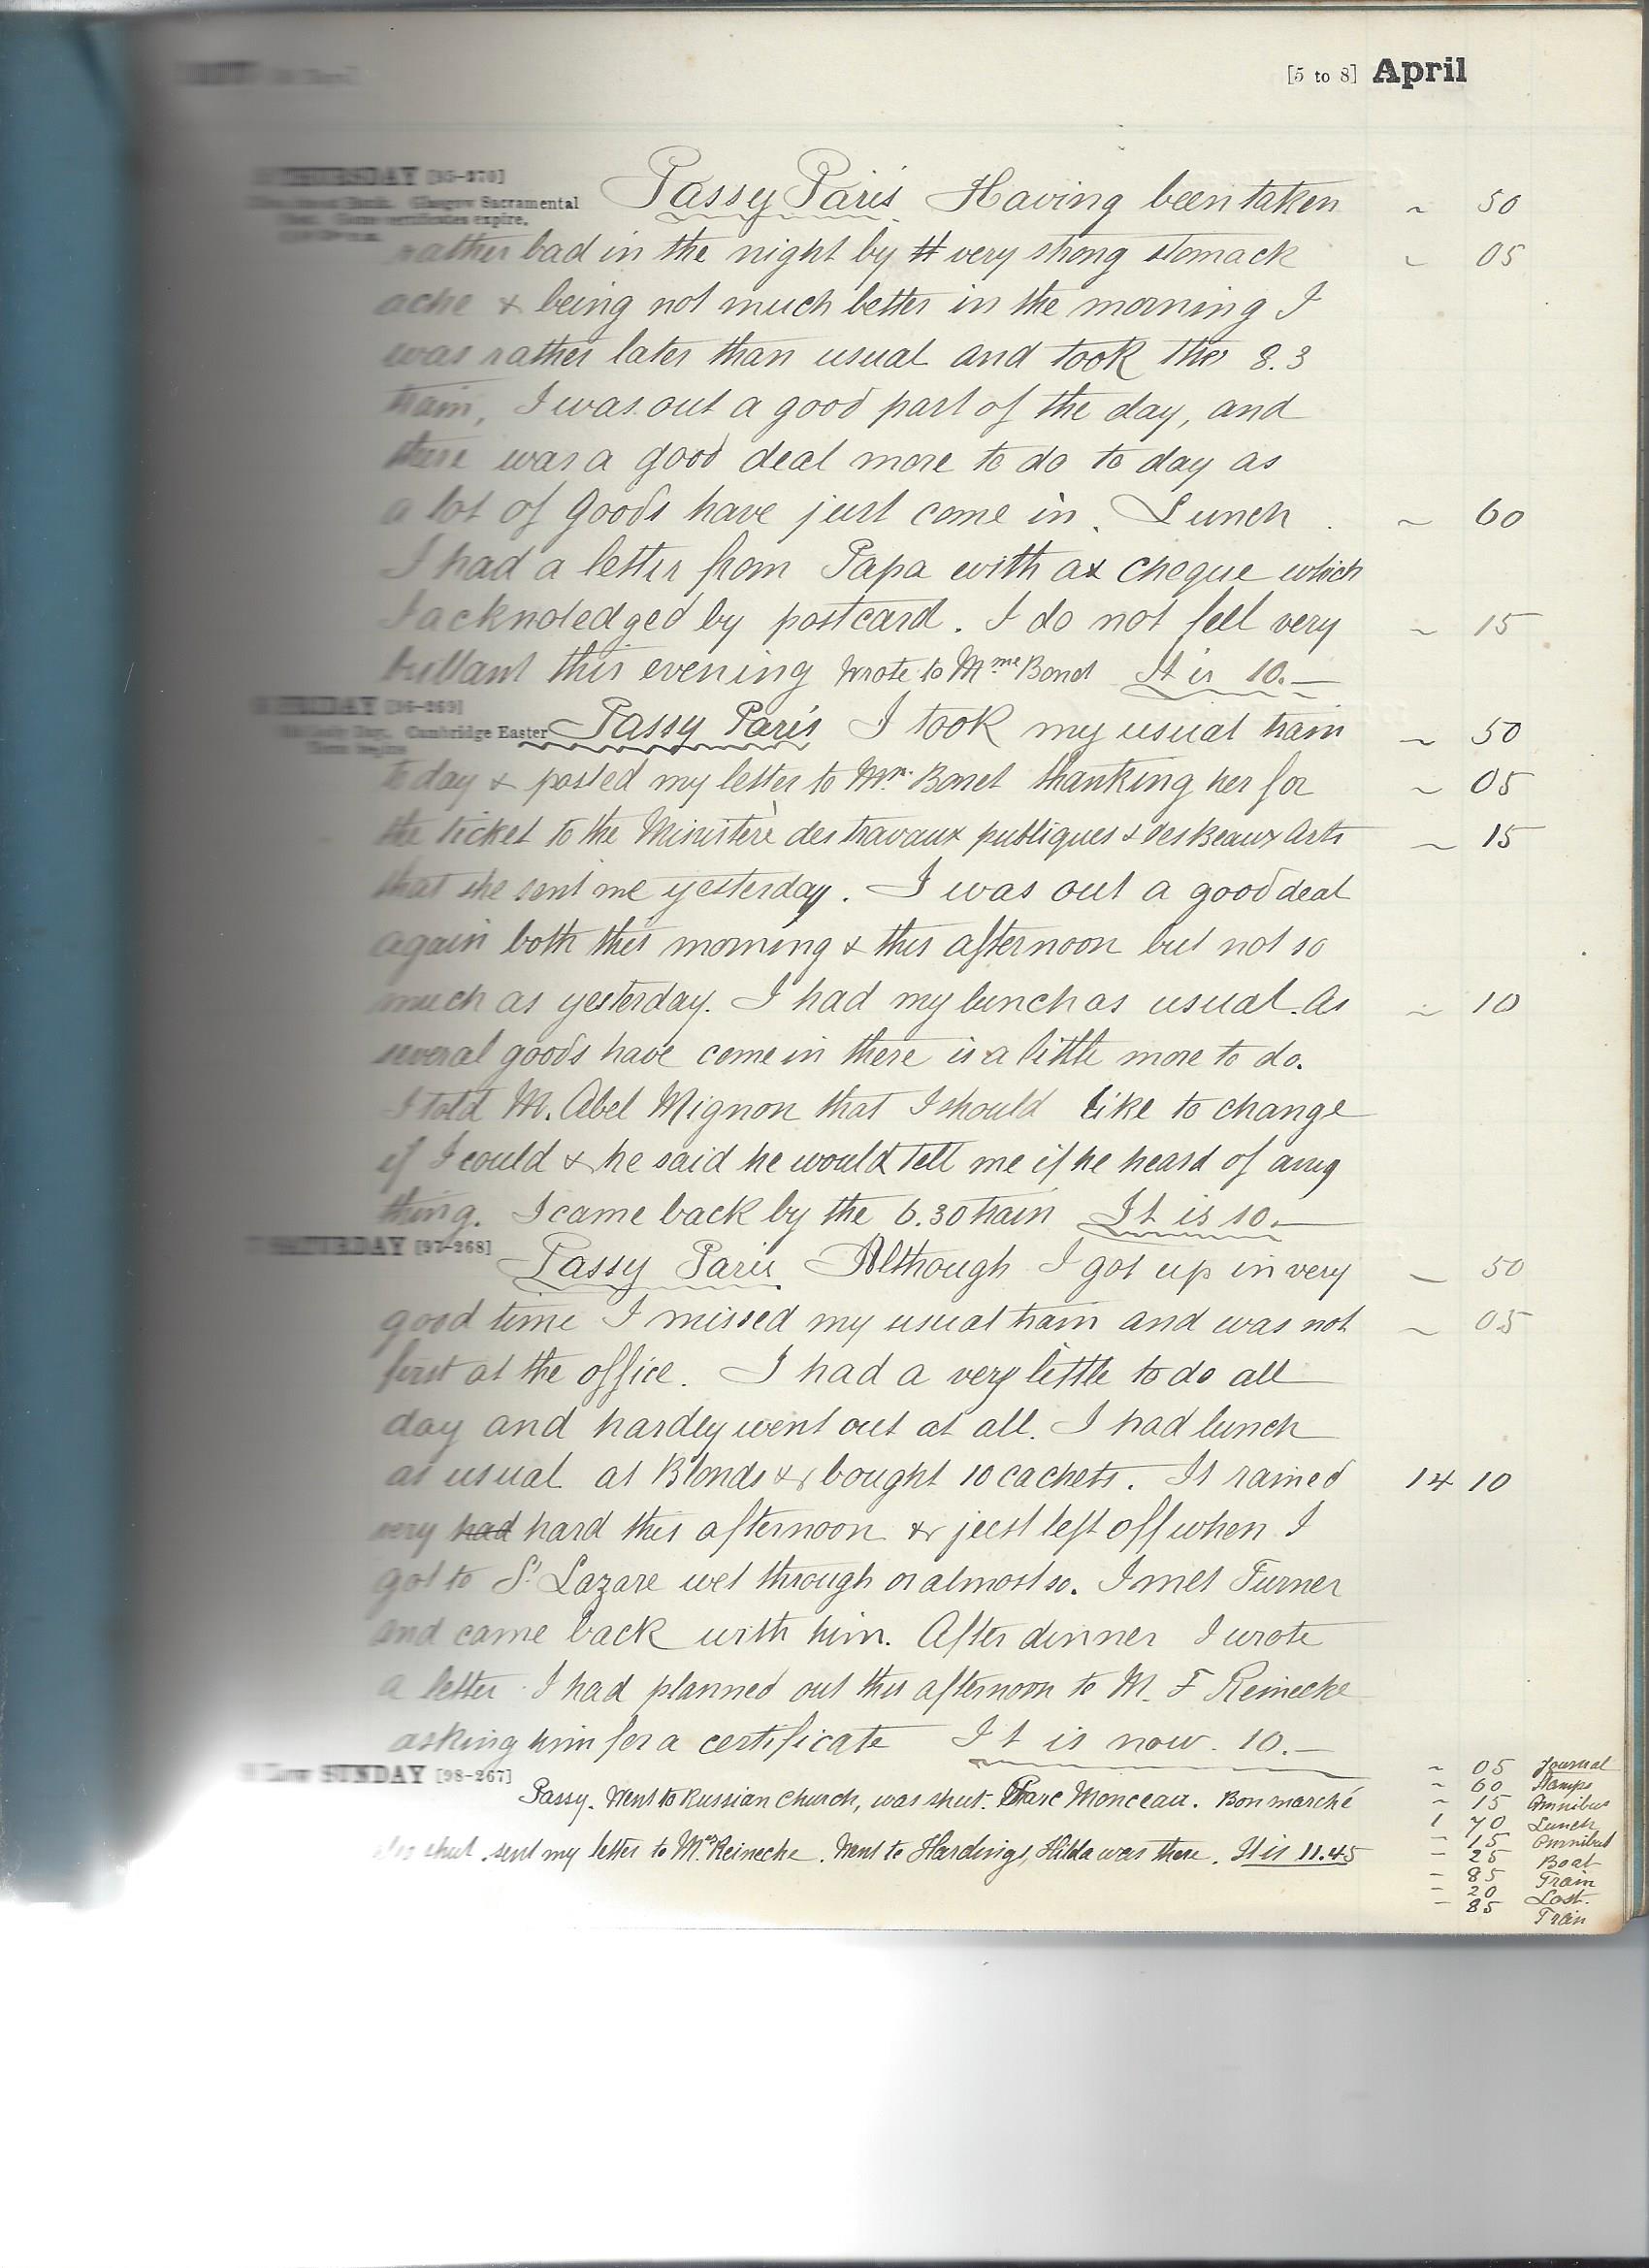 [5 to 8] April
THURSDAY [95-270]
Glasgow Sacramental
certificates expire.
Passy Paris Having been taken ~ 50
rather bad in the night by # very strong stomack ~ 05
ache & being not much better in the morning I
was rather later than usual and took the 8.3
train, I was out a good part of the day, and
there was a good deal more to do to day as
a lot of goods have just come in. Lunch . ~ 60
I had a letter from Papa with a cheque which
I acknoledged by postcard. I do not fell very ~ 15
brillant this evening wrote to Mme Bonet It is 10.—
FRIDAY [96-269]
Cambridge Easter
Term begins
Passy Paris I took my usual train ~ 50
to day & posted my letter to Mme Bonet thanking her for ~ 05
the ticket to the Ministère des travaux publiques & des Beaux Arts ~ 15
that she sent me yesterday. I was out a good deal
again both this morning & this afternoon but not so
much as yesterday. I had my lunch as usual. As ~ 10
several goods have come in there is a little more to do.
I told M. Abel Mignon that I should like to change
if I could & he said he would tell me if he heard of any
thing. I came back by the 6.30 train It is 10.—
SATURDAY [97-268]
Passy Paris Although I got up in very — 50
good time I missed my usual train and was not ~ 05
first at the office. I had a very little to do all
day and hardly went out at all. I had lunch
as usual at Blonds & bought 10 cachets. It rained 14 10
very had hard this afternoon & just left off when I
got to St Lazare wet through or almost so. I met Turner
and came back with him. After dinner I wrote
a letter I had planned out this afternoon to M. F Reinecke
asking him for a certificate It is now 10.—
Low SUNDAY [98-267]
Passy. Went to Russian Church, was shut. Parc Monceau. Bon marché
also shut. sent my letter to Mr Reinecke. Went to Hardings, Hilda was there. It is 11.45
~ 05 Journal
~ 60 Stamps
~ 15 Omnibus
1 70 Lunch
~ 15 Omnibus
— 25 Boat
— 85 Train
— 20 Lost.
— 85 Train